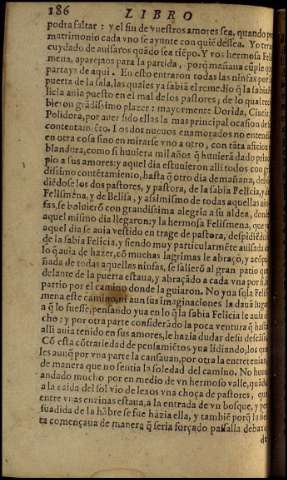 186 LIBRO
podra faltar: y el fin de vuestros amores sea, quando por
matrimonio cada vno se ayunte con quiē dessea. Yo terne
cuydado de auisaros quādo sea tiēpo. Y vos hermosa Felis
mena, aparejaos para la partida, porq̄ mañana cūple que
partays de aqui. En esto entraron todas las ninfas por la
puerta de la sala, las quales ya sabiā el remedio q̄ la sabia Fe
licia auia puesto en el mal de los pastores, de lo qual reci
bierō grādissimo plazer: mayormente Dorida, Cintia, y
Polidora, por auer sido ellas la mas principal ocasion de su
contentamiēto. Los dos nueuos enamorados no entendiā
en otra cosa sino en mirarse vno a otro, con tāta aficiō y
blandura, como si huuiera mil años q̄ huuierā dado princi
pio a sus amores: y aquel dia estuuieron alli todos con grā
dissimo contētamiento, hasta q̄ otro dia de mañana, despi
diēdose los dos pastores, y pastora, de la sabia Felicia, y de
Felismena, y de Belisa, y assimismo de todas aquellas nin
fas, se boluierō con grandissima alegria a su aldea, donde
aquel mismo dia llegaron: y la hermosa Felismena, que ya
aquel dia se auia vestido en trage de pastora, despidiēdose
de la sabia Felicia, y siendo muy particularmēte auisada de
lo q̄ auia de hazer, cō muchas lagrimas le abraço, y acōpa
ñada de todas aquellas ninfas, se salierō al gran patio que
delante de la puerta estaua, y abraçādo a cada vna por si, se
partio por el camino donde la guiaron. No yua sola Felis
mena este camino, ni aun sus imaginaciones la dauā lugar
a q̄ lo fuesse, pensando yua en lo q̄ la sabia Felicia le auia di
cho: y por otra parte considerādo la poca ventura q̄ hasta
alli auia tenido en sus amores, le hazia dudar de su descāso.
Cō esta cōtrariedad de pensamiētos yua lidiando, los qua
les aunq̄ por vna parte la cansauan, por otra la entreteniā,
de manera que no sentia la soledad del camino. No huuo
andado mucho por en medio de vn hermoso valle, quādo
a la caida del sol vio de lexos vna choça de pastores, que
entre vnas enzinas estaua, a la entrada de vn bosque, y per
suadida de la hābre se fue hazia ella, y tambiē porq̄ la sies
ta començaua de manera q̄ seria forçado passalla debaxo
de